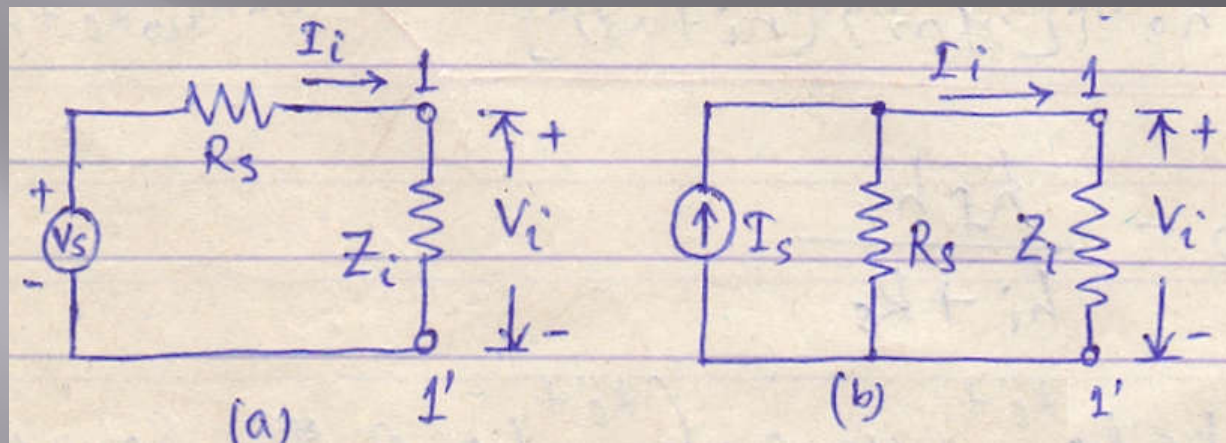 Ii
1
Rs
+
Vs
-
Zi
+
Vi
-
1'
(a)
Ii
1
Is
Rs
Zi
+
Vi
-
1'
(b)